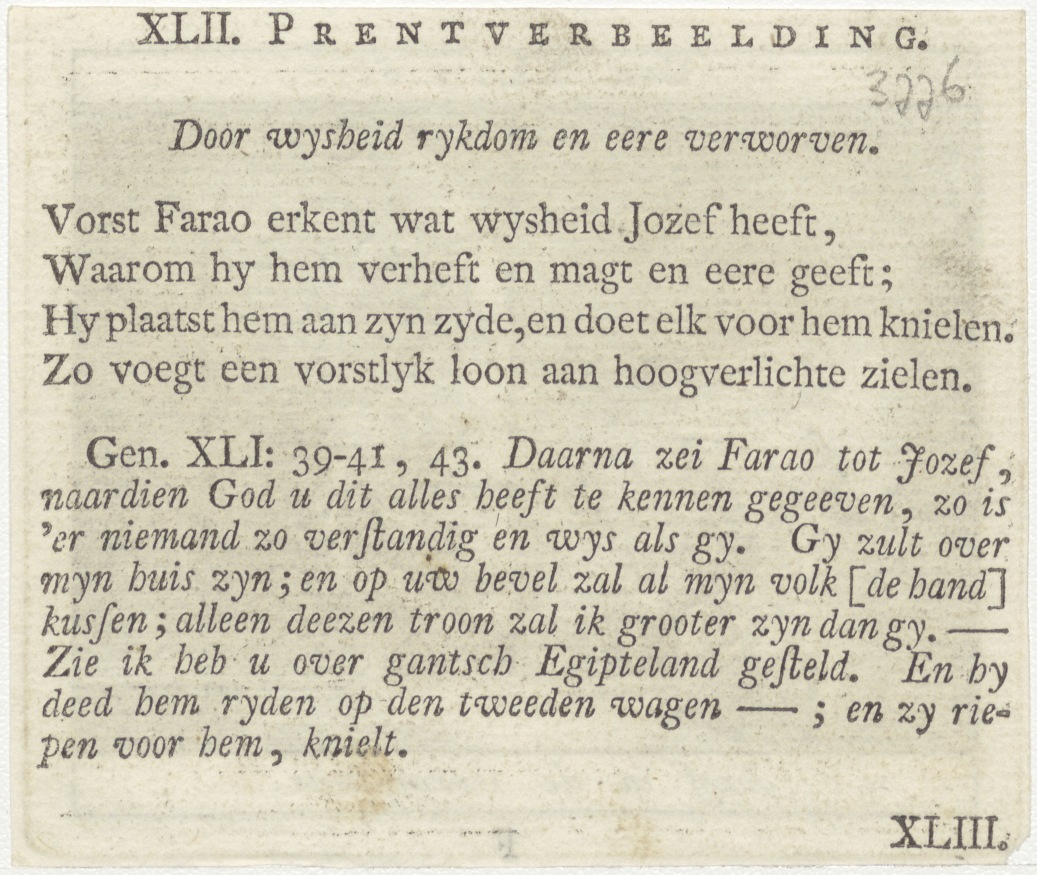 XLII. PRENTVERBEELDING.
3226
Door wysheid rykdom en eere verworven.
Vorst Farao erkent wat wysheid Jozef heeft,
Waarom hy hem verheft en magt en eere geeft;
Hy plaatst hem aan zyn zyde, en doet elk voor hem knielen.
Zo voegt een vorstlyk loon aan hoogverlichte zielen.
Gen. XLI: 39-41, 43. Daarna zei Farao tot Jozef,
naardien God u dit alles heeft te kennen gegeeven, zo is
'er niemand zo verſtandig en wys als gy. Gy zult over
myn huis zyn; en op uw bevel zal al myn volk [de hand]
kusſen; alleen deezen troon zal ik grooter zyn dan gy. —
Zie ik heb u over gantsch Egipteland geſteld. En hy
deed hem ryden op den tweeden wagen — ; en zy rie-
pen voor hem, knielt.
XLIII.